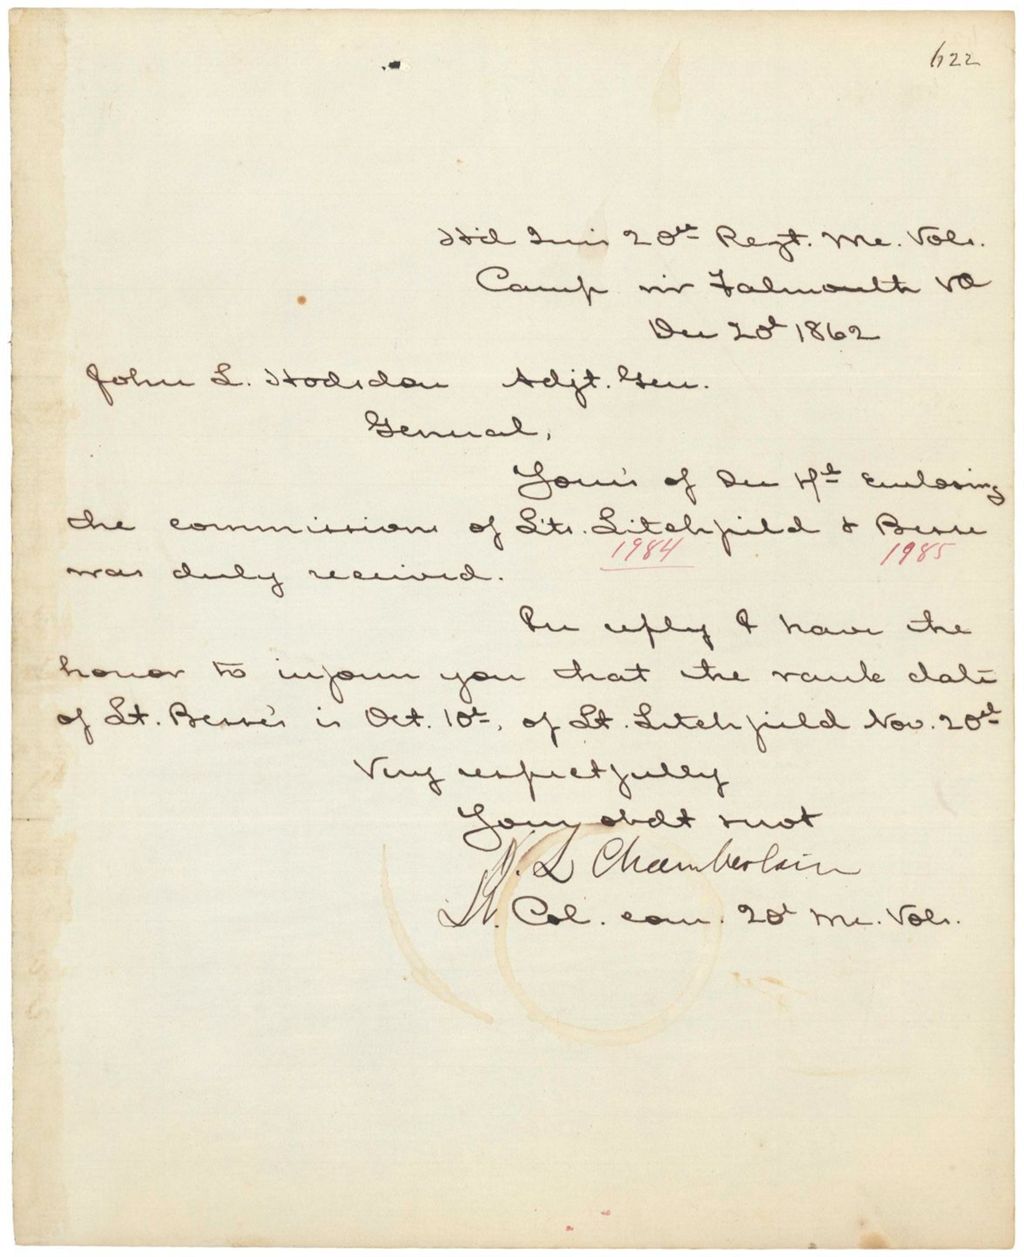 622
Hd Qrs 20th Regt. Me. Vols.
Camp nr Falmouth Va
Dec 20th 1862
John L. Hodsdon Adjt. Gen.
General,
Yours of Dec enclosing
the commissions of Lts. Litchfield & Besse
1984 1985
was duly received.
In reply I have the
honor to inform you that the rank date
of Lt. Besse's is Oct. 10th, of Lt. Litchfield Nov. 20th
Very respectfully
Your obdt servt
J. L Chamberlain
Lt. Col. com. 20th Me. Vols.